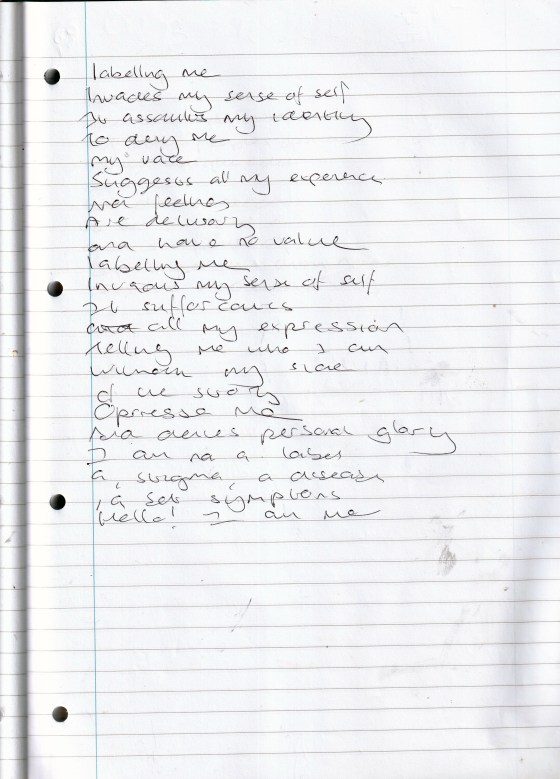 labelling me
Invades my sense of self
It assaults my identity
to deny me
my voice
Suggests all my experience
and feelings
Are delusory
and have no value
labelling me
Invades my sense of self
It suffocates
all my expression
Telling me who I am
Without my side
of the story
Opresses me
And denies personal glory
I am not a label
a, stigma, a disease
, a set symptoms
Hello! I am me